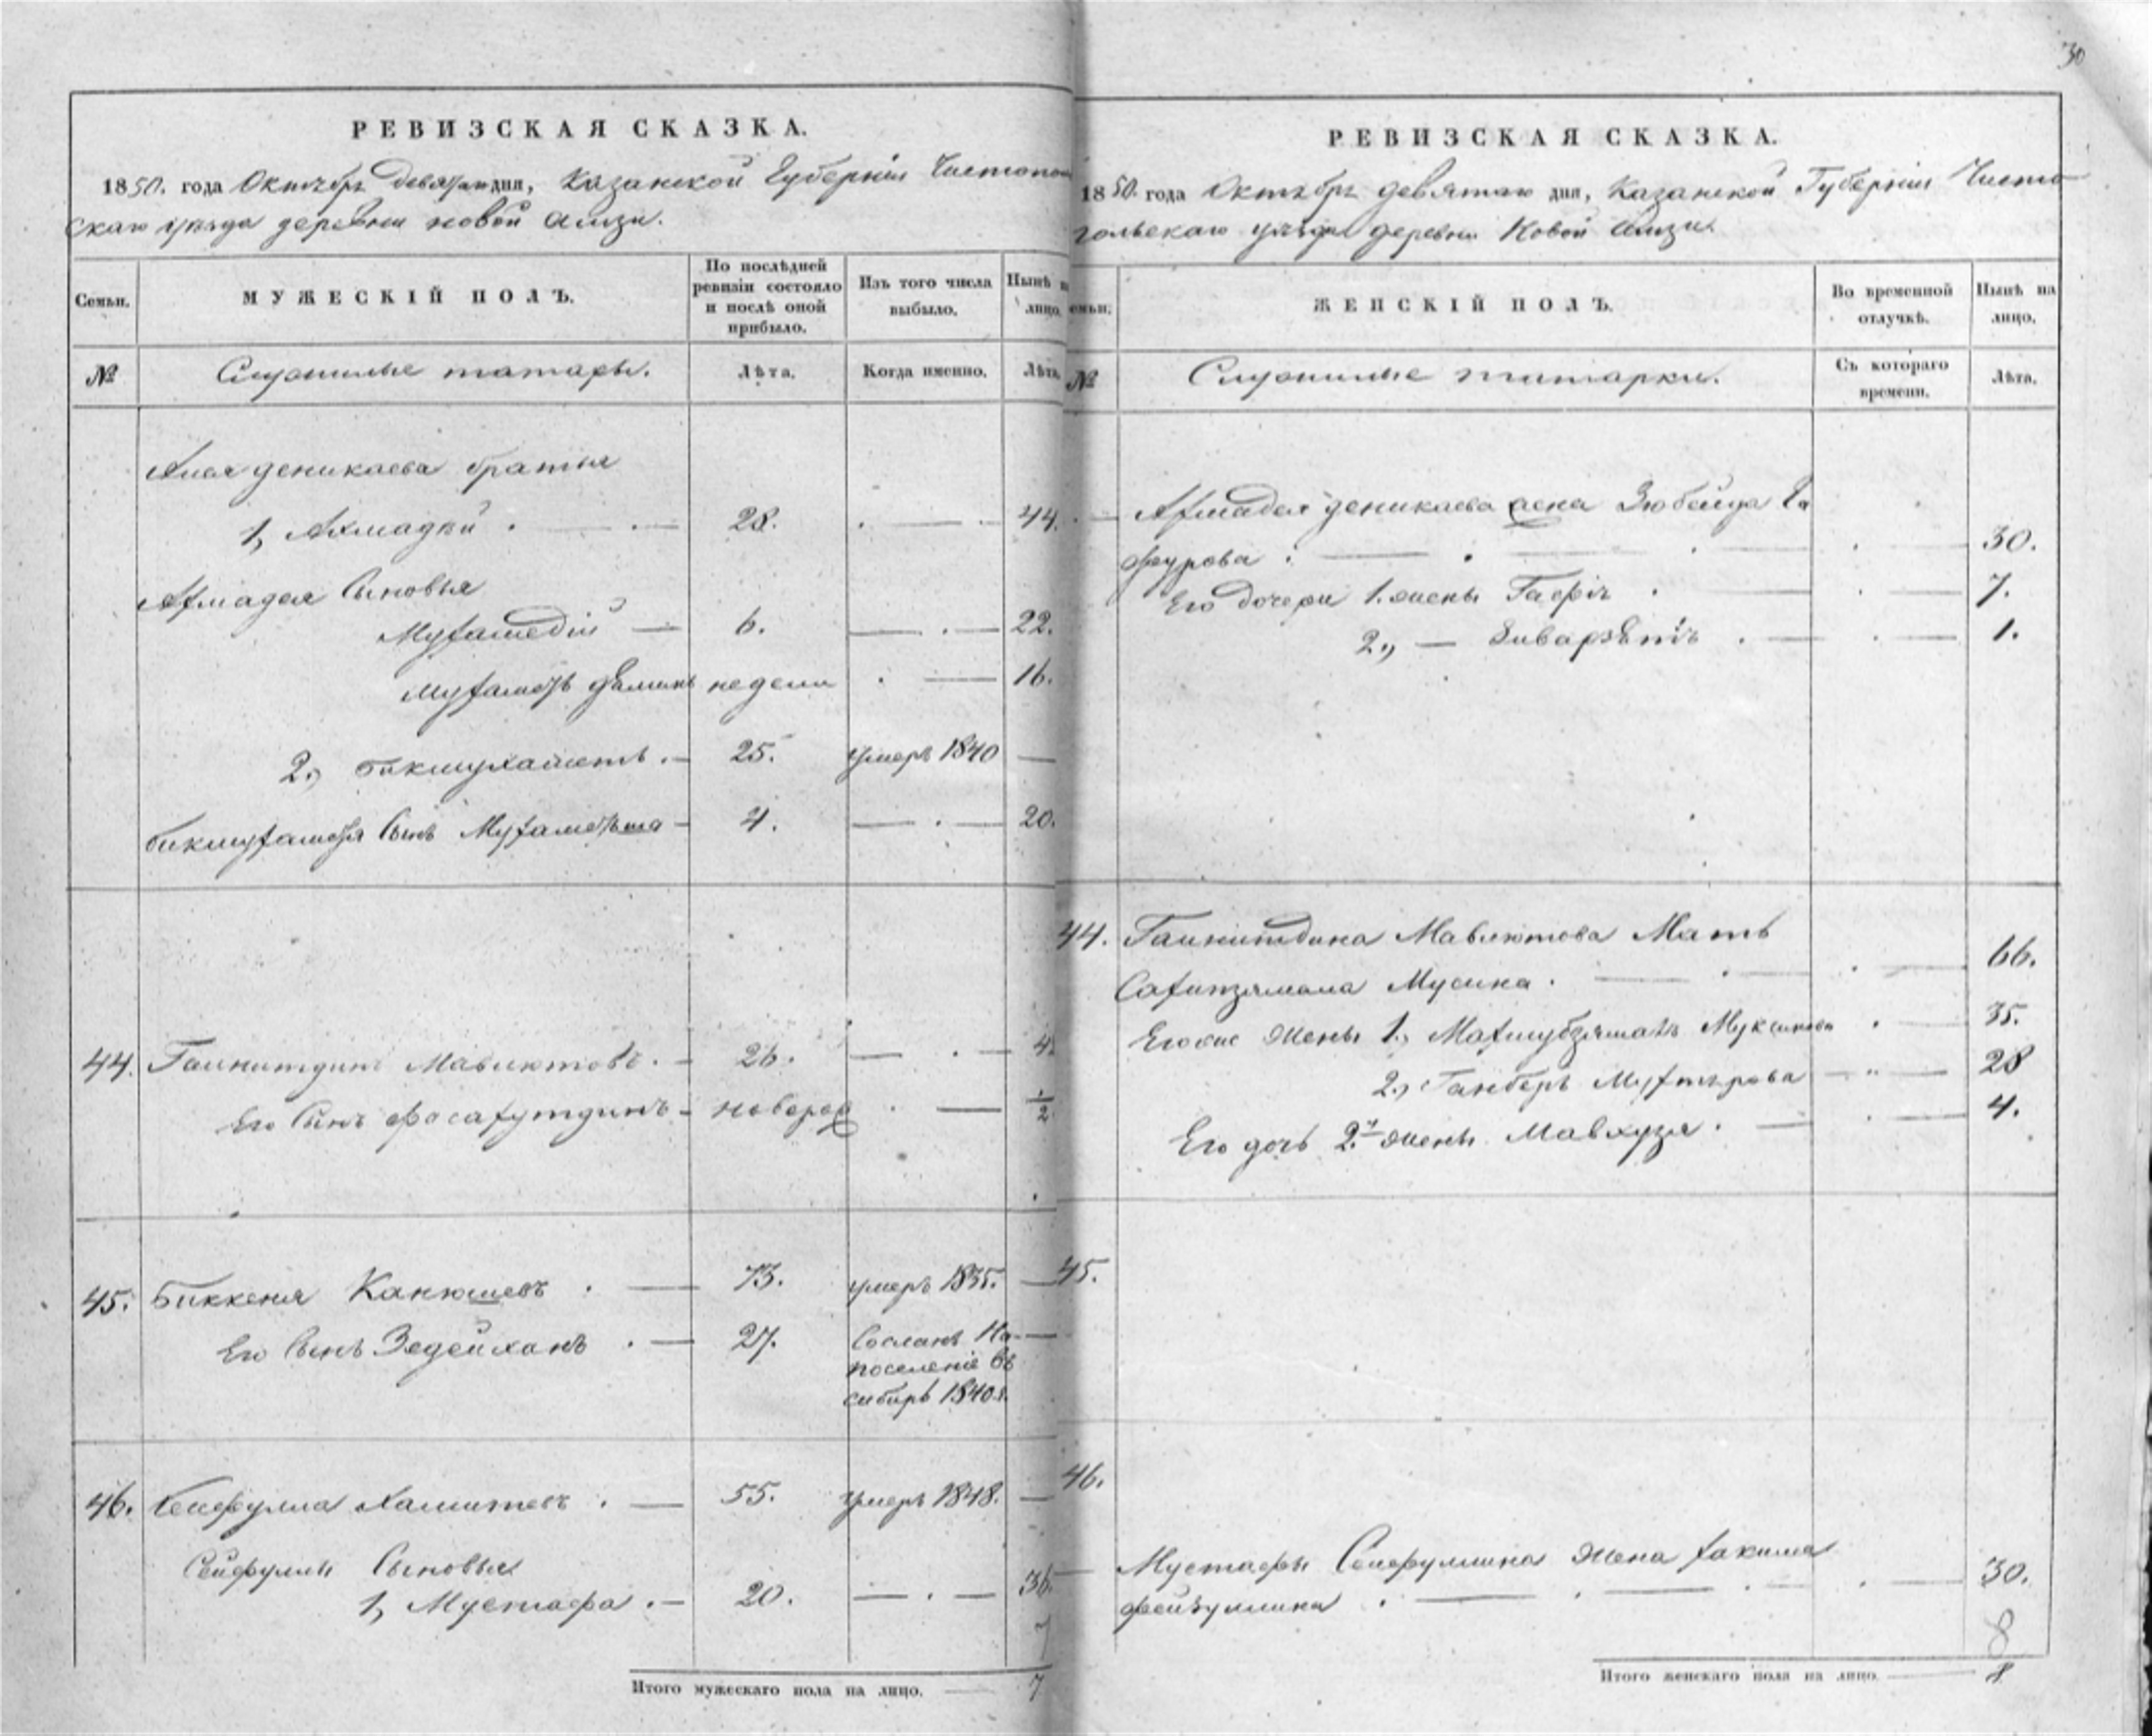 30
РЕВИЗСКАЯ СКАЗКА.
1850. года Октября девятаго дня, Казанской Губерніи Чистополь
скаго уѣзда деревни новой амзи.
Семьи.
МУЖЕСКІЙ ПОЛЪ.
По послѣдней ревизіи состояло и послѣ оной прибыло.
Изъ того числа выбыло.
Нынѣ на лицо.
№
Служилые татары.
Лѣта.
Когда именно.
Лѣта.
деникаева братья
1, Ахмадѣй 28. 44.
Ахмадея Сыновья
Мухамедій 6. 22.
недели 16.
2., бикмухаметъ. 25. умеръ 1840
Сынъ 4. 20.
44. Гаинитдинъ Мавлютовъ. 26.
Его Сынъ Фасахутдинъ новорож 1/2
45. Биккеня Канюшевъ 73. умеръ 1835.
Его Сынъ Зедейханъ 27. Сосланъ На
поселеніе въ
сибирь 1840 г.
46. Сейфулла Хамитовъ 55. умеръ 1848.
Сейфуллы Сыновья
1, Мустафа 20. 36.
7
Итого мужескаго пола на лицо. 7
РЕВИЗСКАЯ СКАЗКА.
1850. года Октября девятаго дня, Казанской Губерніи Чисто
польскаго уѣзда деревни Новой Амзи.
Семьи.
ЖЕНСКІЙ ПОЛЪ.
Во временной отлучкѣ.
Нынѣ на лицо.
№
Служилые татарки.
Съ котораго времени.
Лѣта.
Ахмадея деникаева жена Зюбейда Га
фурова 30.
Его дочери 1. жены 7.
2., 1.
44. Гаинитдина Мавлютова Мать
Мусина 66.
Его же жены 1., 35.
2., 28
Его дочь 2й жены Мавхузя 4.
45.
46.
Мустафы Сейфуллина жена Хакима
фейзуллина 30.
8
Итого женскаго пола на лицо. 8